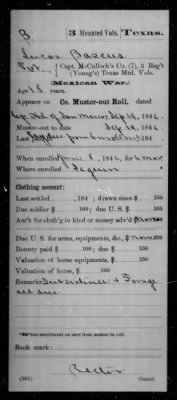 B 3 Mounted Vols. Texas.
Lucas Pascus
Pvt., Capt. McCulloch's Co. (?), 3 Reg't
(Young's) Texas Mtd. Vols.
Mexican War.
Age 18 years.
Appears on Co. Muster-out Roll, dated
Sept 14, 1846.
Muster-out to date Sep 14, 1846.
Last paid to
When enrolled June 1, 1846,
Where enrolled Seguin
Clothing account:
Last settled , 184 ; drawn since $ 100
Due soldier $ 100; due U. S. $ 100
Am't for cloth'g in kind or money adv'd $ 100
Due U. S. for arms, equipments, &c., $ 100
Bounty paid $ 100; due $ 100
Valuation of horse equipments, $ 100
Valuation of horse, $ 100
Remarks: Subsistence & Forage
all due
*See enrollment on card from muster-in roll.
Book mark:
Rector
(361) Copyist.